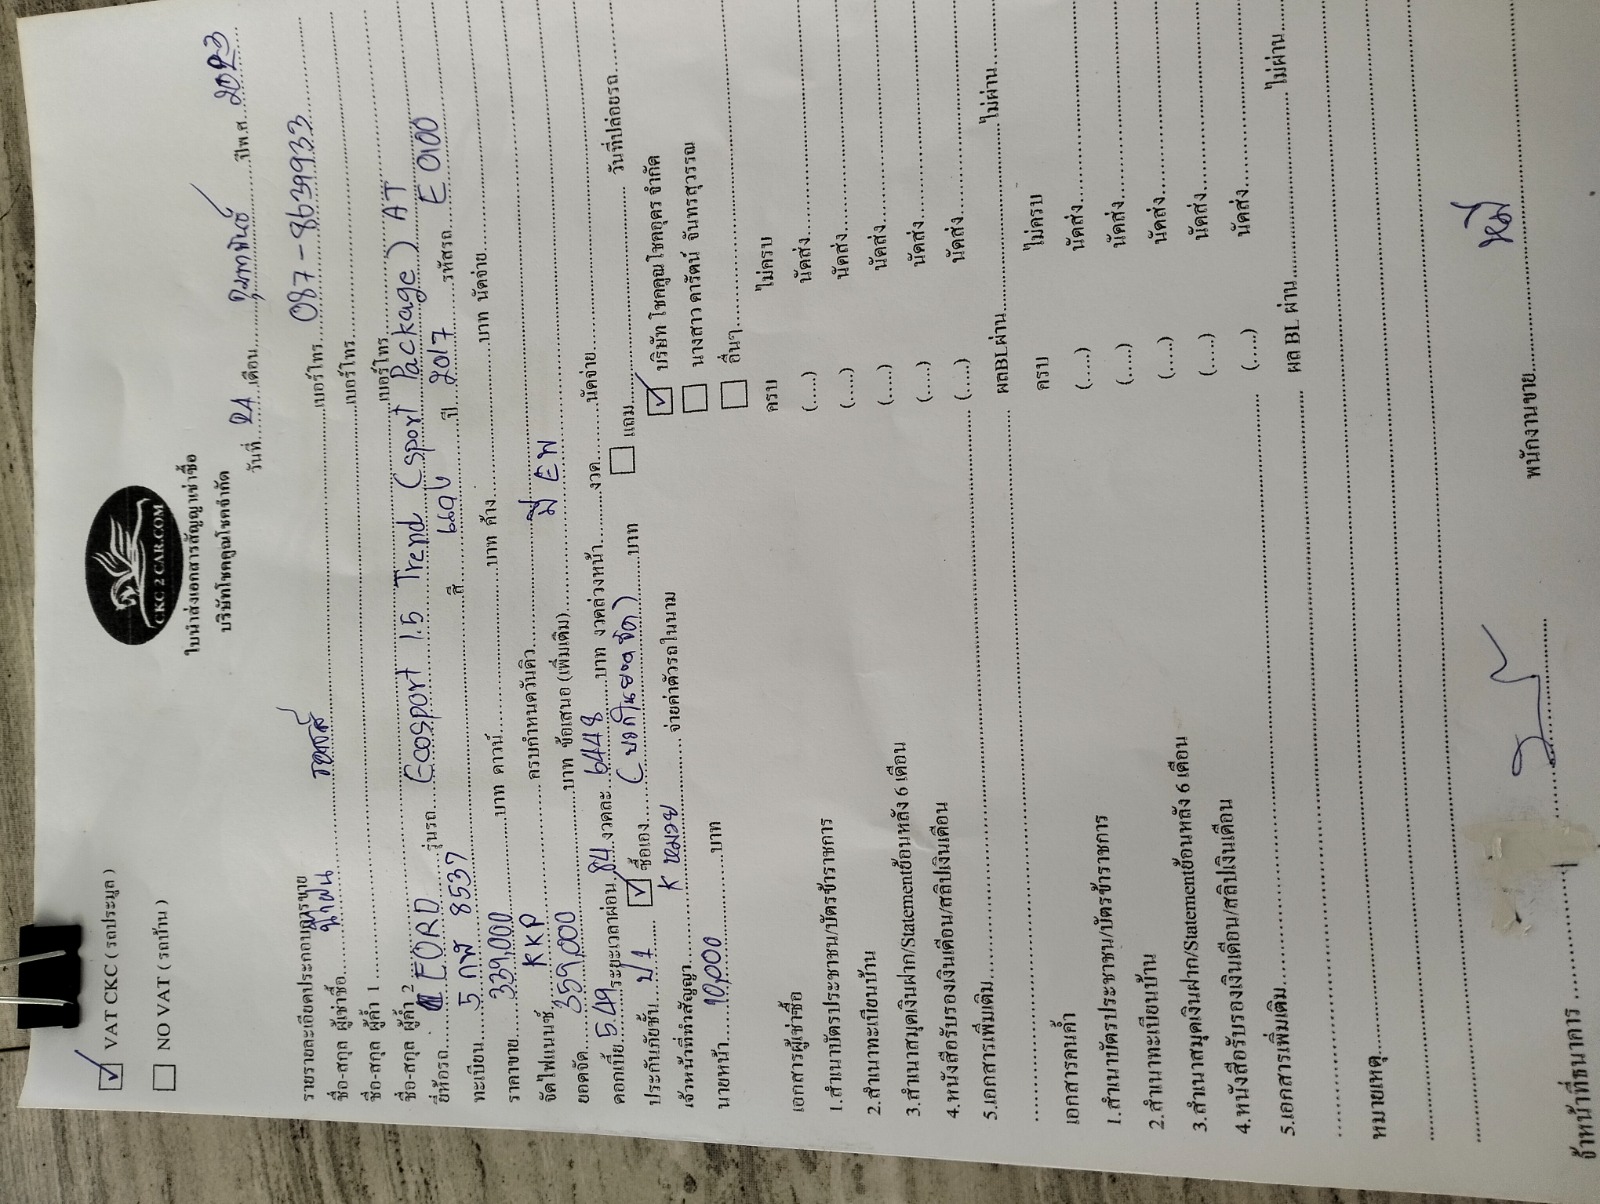 VAT CKC ( รถประมูล )
NO VAT ( รถบ้าน )
CKC 2 CAR.COM
ใบนำส่งเอกสารสัญญาเช่าซื้อ
บริษัทโชคคูณโชคจำกัด
วันที่ 24 เดือน กุมภาพันธ์ ปีพ.ศ. 2023
รายรายละเอียดประกอบการขาย
ชื่อ-สกุล ผู้เช่าซื้อ เบอร์โทร 087-8639933
ชื่อ-สกุล ผู้ค้ำ 1 เบอร์โทร
ชื่อ-สกุล ผู้ค้ำ 2 เบอร์โทร
ยี่ห้อรถ FORD รุ่นรถ Ecosport 1.5 Trend (sport Package) AT
ทะเบียน 5 กฬ 8537 สี แดง ปี 2017 รหัสรถ E 0100
ราคาขาย 339,000 บาท ดาวน์ บาท ค้าง บาท นัดจ่าย
จัดไฟแนนซ์ KKP ครบกำหนดวันคิว
ยอดจัด 359,000 บาท ข้อเสนอ (เพิ่มเติม) มี EW
ดอกเบี้ย 5.49 ระยะเวลาผ่อน 84 งวดละ 6448 บาท งวดล่วงหน้า งวด นัดจ่าย
ประกันภัยชั้น ป1 ซื้อเอง (บวกในยอดจัด) บาท แถม วันที่ปล่อยรถ
เจ้าหน้าที่ทำสัญญา K หมวย จ่ายค่าตัวรถในนาม บริษัท โชคคูณโชคอุดร จำกัด
นางสาว ดารัตน์ จันทรสุวรรณ
นายหน้า 10,000 บาท อื่นๆ
เอกสารผู้เช่าซื้อ ครบ ไม่ครบ
1.สำเนาบัตรประชาชน/บัตรข้าราชการ (....) นัดส่ง
2.สำเนาทะเบียนบ้าน (....) นัดส่ง
3.สำเนาสมุดเงินฝาก/Statementย้อนหลัง 6 เดือน (....) นัดส่ง
4.หนังสือรับรองเงินเดือน/สลิปเงินเดือน (....) นัดส่ง
5.เอกสารเพิ่มเติม (....) นัดส่ง
ผลBLผ่าน ไม่ผ่าน
เอกสารคนค้ำ ครบ ไม่ครบ
1.สำเนาบัตรประชาชน/บัตรข้าราชการ (....) นัดส่ง
2.สำเนาทะเบียนบ้าน (....) นัดส่ง
3.สำเนาสมุดเงินฝาก/Statementย้อนหลัง 6 เดือน (....) นัดส่ง
4.หนังสือรับรองเงินเดือน/สลิปเงินเดือน (....) นัดส่ง
5.เอกสารเพิ่มเติม (....) นัดส่ง
ผล BL ผ่าน ไม่ผ่าน
หมายเหตุ
จ้าหน้าที่ธนาคาร พนักงานขาย